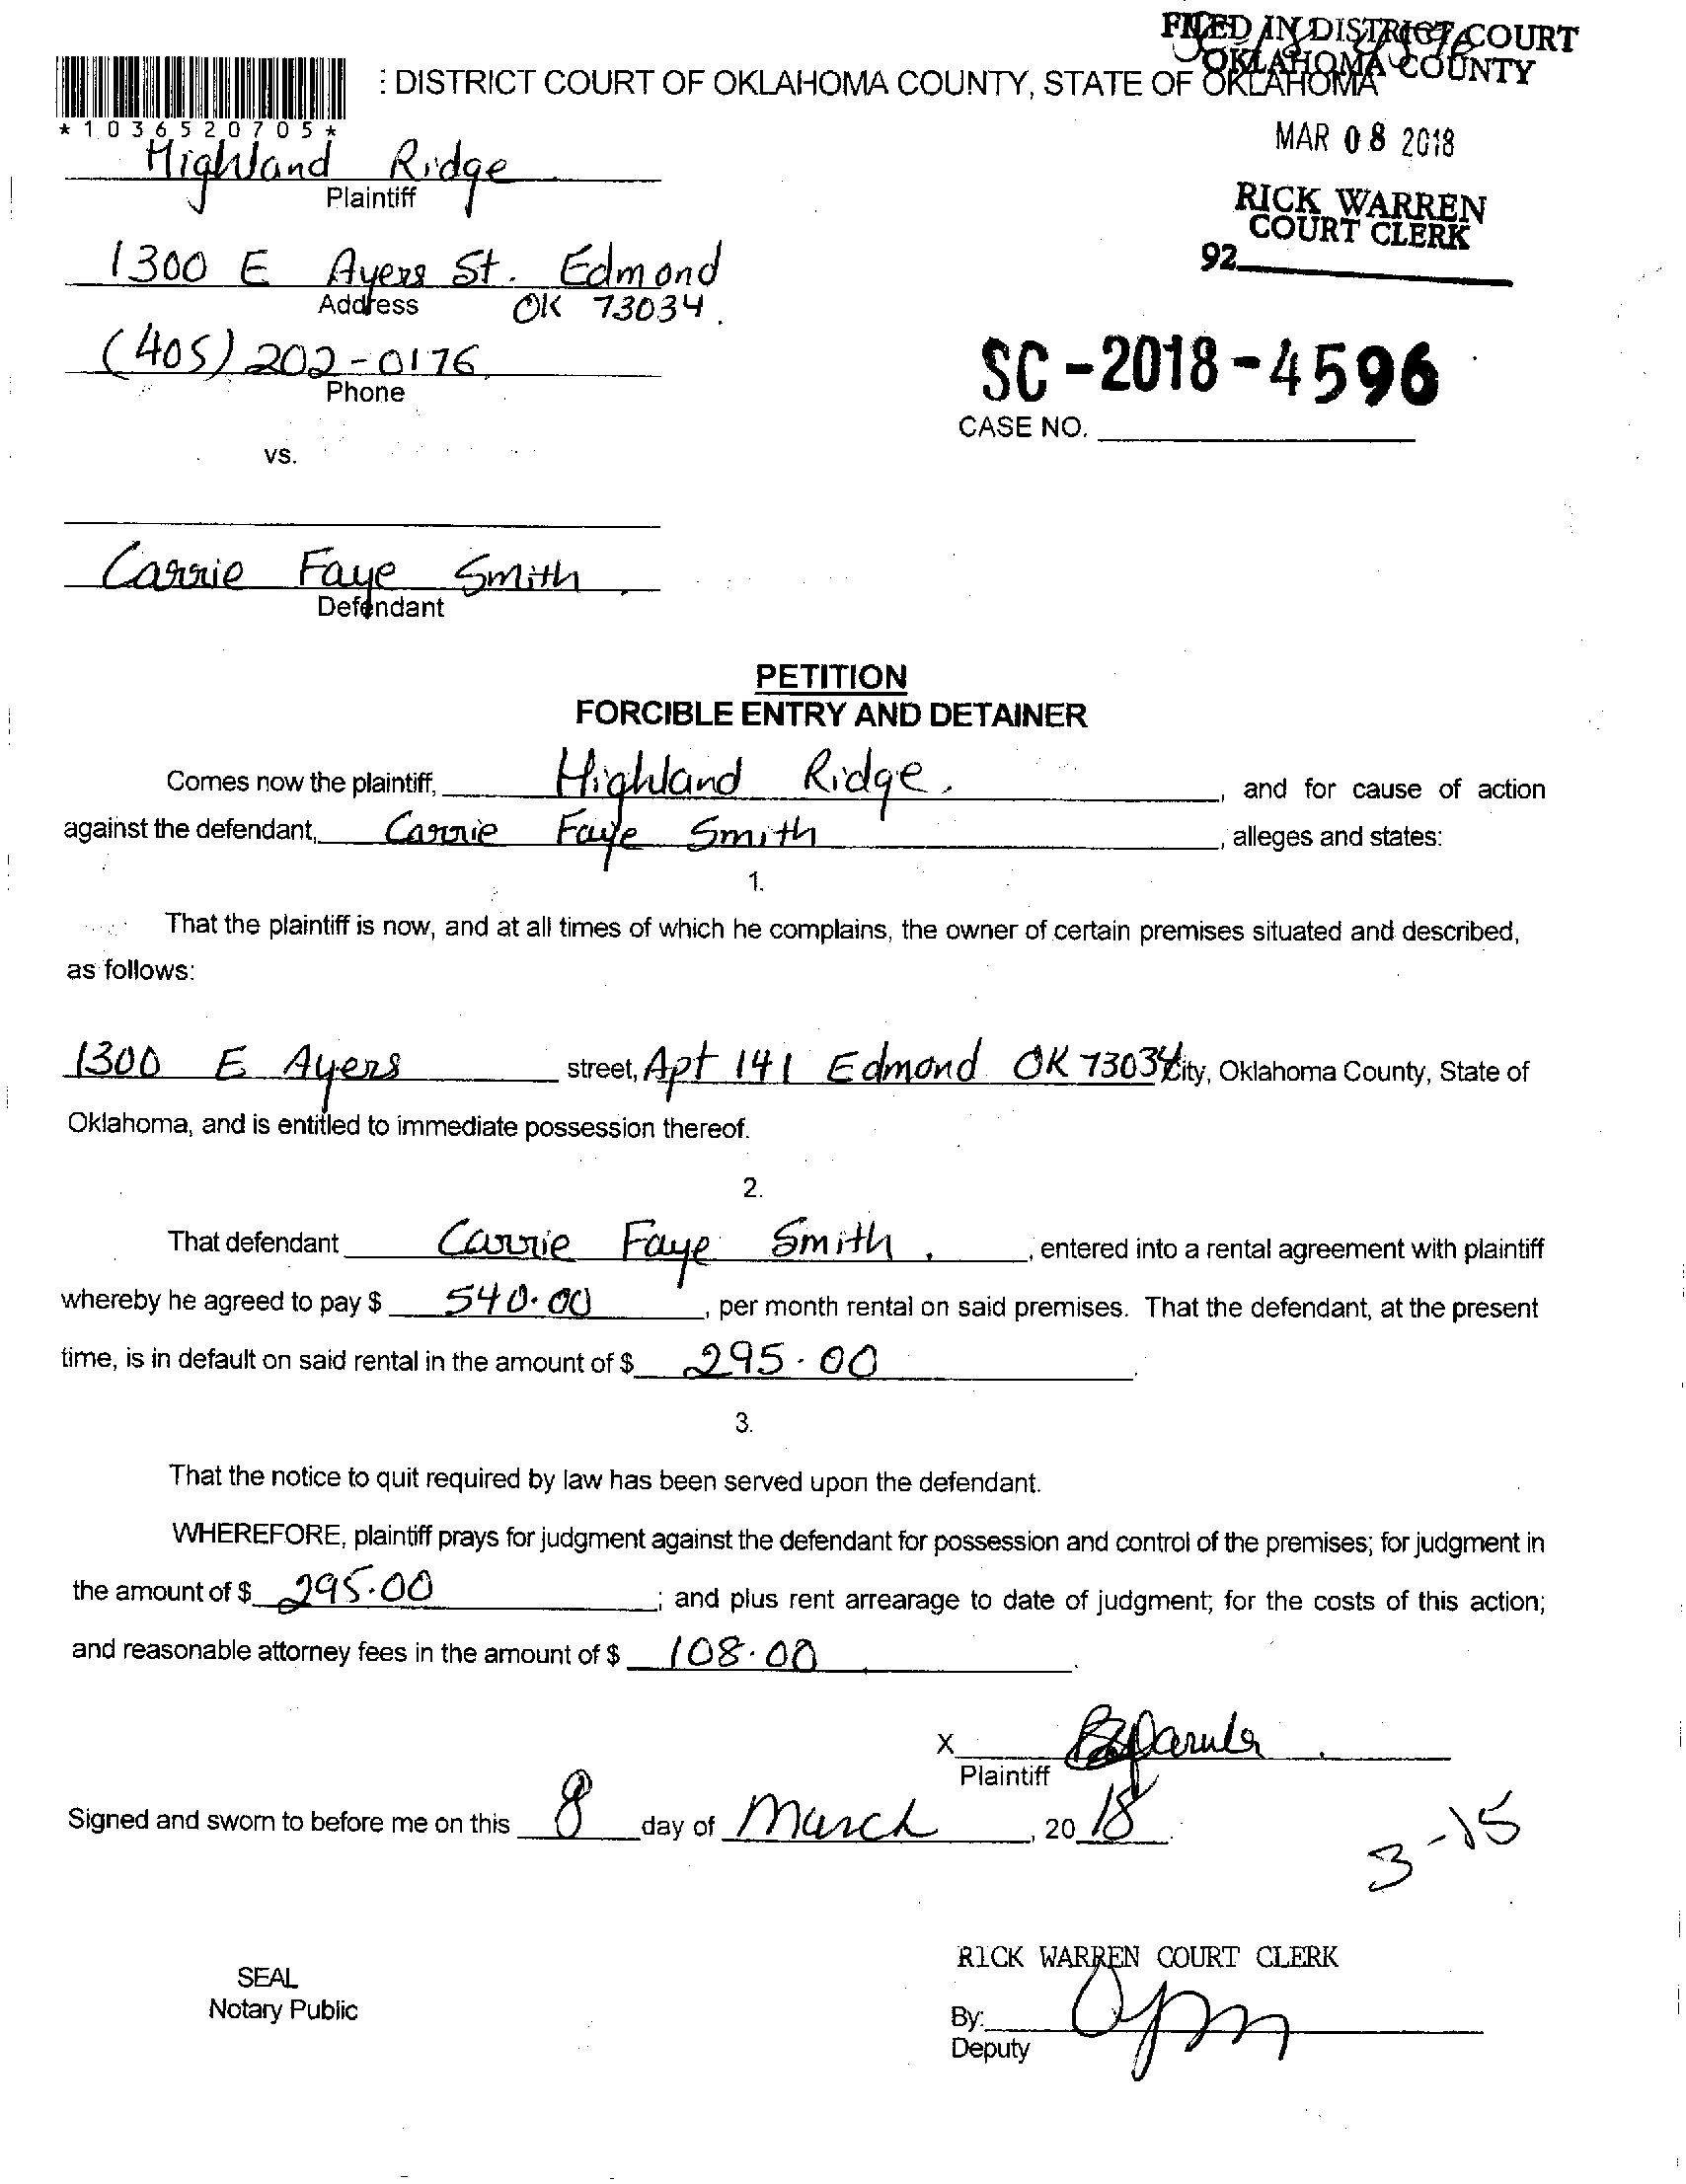 FILED IN DISTRICT COURT
OKLAHOMA COUNTY
: DISTRICT COURT OF OKLAHOMA COUNTY, STATE OF OKLAHOMA
*1036520705*
MAR 08 2018
RICK WARREN
COURT CLERK
92
Highland Ridge
Plaintiff
1300 E Ayers St. Edmond
Address OK 73034.
(405) 202-0176
Phone
SC-2018-4596
CASE NO.
vs.
Carrie Faye Smith
Defendant
PETITION
FORCIBLE ENTRY AND DETAINER
Comes now the plaintiff, Highland Ridge, and for cause of action
against the defendant, Carrie Faye Smith, alleges and states:
1.
That the plaintiff is now, and at all times of which he complains, the owner of certain premises situated and described,
as follows:
1300 E Ayers street, Apt 141 Edmond OK 73034 City, Oklahoma County, State of
Oklahoma, and is entitled to immediate possession thereof.
2.
That defendant Carrie Faye Smith, entered into a rental agreement with plaintiff
whereby he agreed to pay $ 540.00, per month rental on said premises. That the defendant, at the present
time, is in default on said rental in the amount of $ 295.00.
3.
That the notice to quit required by law has been served upon the defendant.
WHEREFORE, plaintiff prays for judgment against the defendant for possession and control of the premises; for judgment in
the amount of $ 295.00; and plus rent arrearage to date of judgment; for the costs of this action;
and reasonable attorney fees in the amount of $ 108.00.
X
Plaintiff
Signed and sworn to before me on this 8 day of March, 20 18.
3-15
RICK WARREN COURT CLERK
SEAL
Notary Public
By:
Deputy